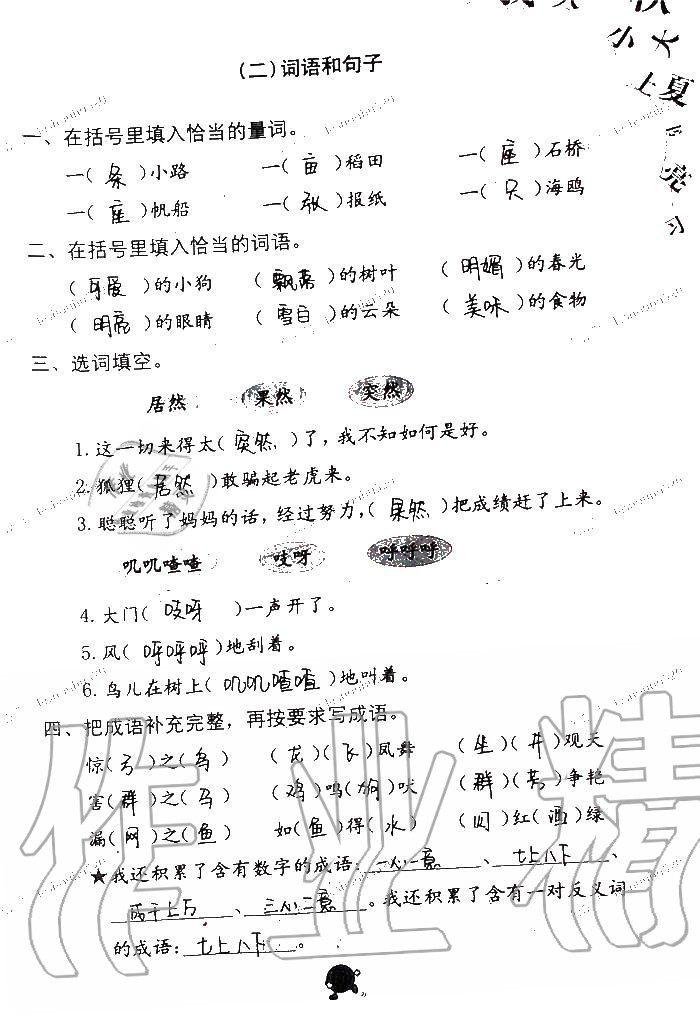 (二)词语和句子
一、在括号里填入恰当的量词。
一(条)小路 一(亩)稻田 一(座)石桥
一(座)帆船 一(张)报纸 一(只)海鸥
二、在括号里填入恰当的词语。
(可爱)的小狗 (飘荡)的树叶 (明媚)的春光
(明亮)的眼睛 (雪白)的云朵 (美味)的食物
三、选词填空。
居然 果然 突然
1.这一切来得太(突然)了，我不知如何是好。
2.狐狸(居然)敢骗起老虎来。
3.聪聪听了妈妈的话，经过努力，(果然)把成绩赶了上来。
叽叽喳喳 吱呀 呼呼呼
4.大门(吱呀)一声开了。
5.风(呼呼呼)地刮着。
6.鸟儿在树上(叽叽喳喳)地叫着。
四、把成语补充完整，再按要求写成语。
惊(弓)之(鸟) (龙)(飞)凤舞 (坐)(井)观天
害(群)之(马) (鸡)鸣(狗)吠 (群)(芳)争艳
漏(网)之(鱼) 如(鱼)得(水) ( )红(酒)绿
★我还积累了含有数字的成语：一心一意、七上八下、
成千上万、三心二意。我还积累了含有一对反义词
的成语：七上八下。
作业精